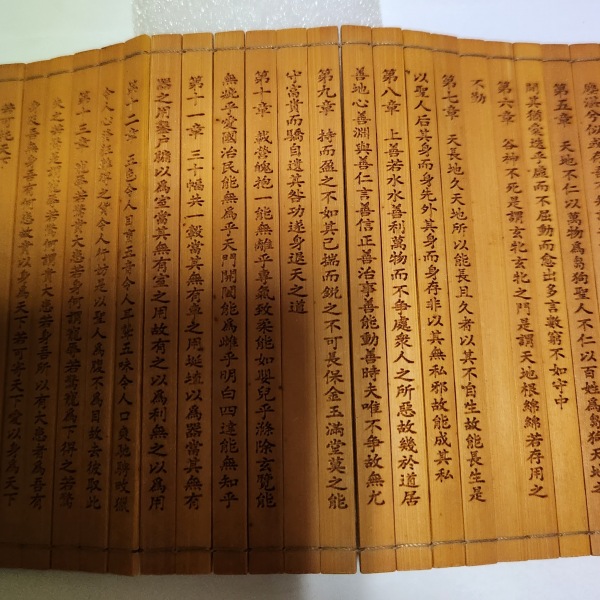 應渙兮似
第五章　天地不仁以萬物為芻狗聖人不仁以百姓為芻狗天地之
間其猶橐迻乎虛而不屈動而愈出多言數窮不如守中
第六章　谷神不死是謂玄牝玄牝之門是謂天地根綿綿若存用之
不勤
第七章　天長地久天地所以能長且久者以其不自生故能長生是
以聖人后其身而身先外其身而身存非以其無私邪故能成其私
第八章　上善若水水善利萬物而不爭處衆人之所惡故幾於道居
善地心善淵與善仁言善信正善治事善能動善時夫唯不爭故無尤
第九章　持而盈之不如其已揣而銳之不可長保金玉滿堂莫之能
守富貴而驕自遺其咎功遂身退天之道
第十章　載營魄抱一能無離乎專氣致柔能如嬰兒乎滌除玄覽能
無疵乎愛國治民能無為乎天門開闔能為雌乎明白四達能無知乎
第十一章　三十幅共一轂當其無有車之用埏埴以為器當其無有
器之用鑿戶牖以為室當其無有室之用故有之以為利無之以為用
第十二章　五色令人目盲五音令人耳聾五味令人口爽馳騁畋獵
令人心發狂難得之貨令人行妨是以聖人為腹不為目故去彼取此
第十三章　寵辱若驚貴大患若身何謂寵辱若驚寵為下得之若驚
失之若驚是謂寵辱若驚何謂貴大患若身吾所以有大患者為吾有
身及吾無身吾有何患故貴以身為天下若可寄天下愛以身為天下
若可託天下